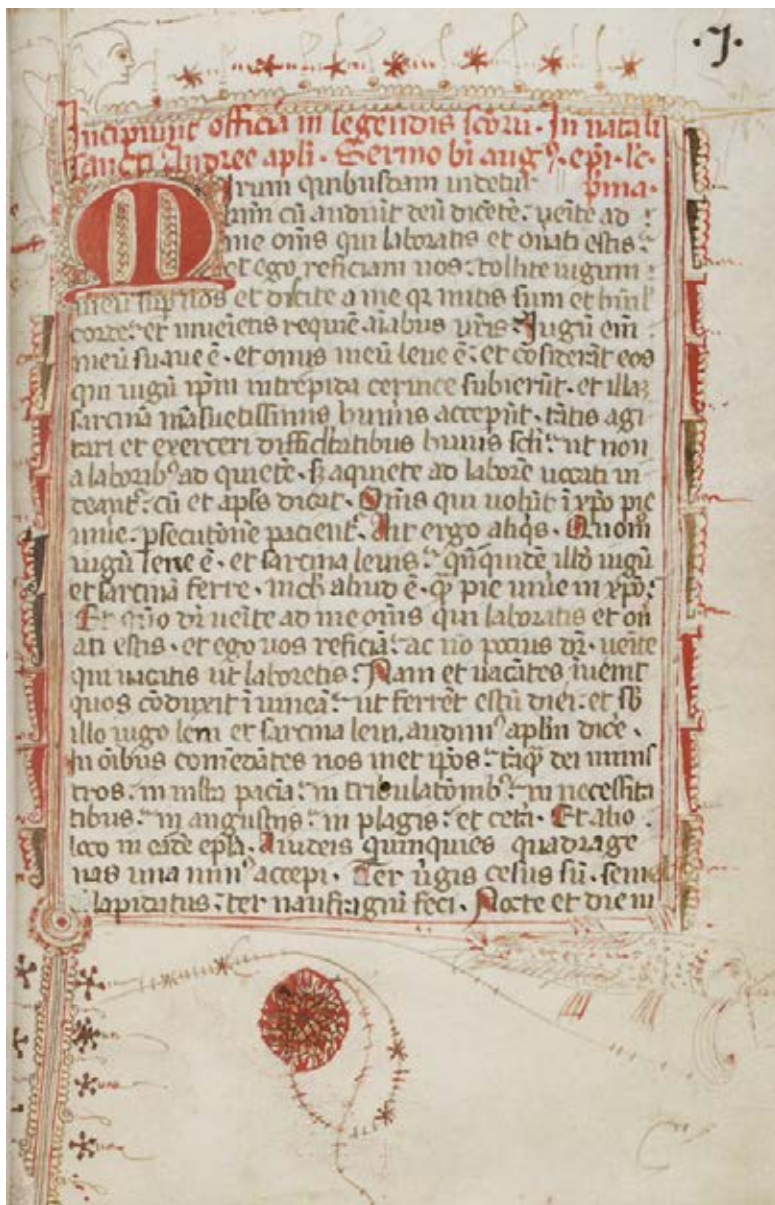 ·j·
Incipiunt officia in legendis scoru · In natali
sancti Andree apli · Sermo bi aug9 · epi · lc
pma ·
Mirum quibusdam uidetur
cu audiut deu dicete · uenite ad
me oms qui laboratis et onati estis
et ego reficiam uos : tollite iugum
meu sup uos et dicite a me qr mitis sum et humil
corde : et inuenietis requie aiabus uris : Iugu eni
meu suaue e · et onus meu leue e : et cosiderat eos
qui iugu ipm intrepida ceruice subierut · et illaz
sarcina masuetissimis humis acceput · tatis agi
tari et exerceri difficultatibus huius scli : ut non
a laborib9 ad quiete · sz a quiete ad labore uocati ui
deant : cu et apls dicat · Oms qui uolut i xpo pie
uiue · psecutione pacient · Ait ergo aliqs · Quom
iugu leue e · et sarcina leuis : qnquide illd iugu
et sarcina ferre · nich aliud e · q pie uiue in xpo :
Et quo dr uenite ad me oms qui laboratis et on
ati estis · et ego uos reficia : ac no pocius dr · uenite
qui uacatis ut laboretis : Nam et uacates iuenit
quos coduxit i uinea : ut ferret estu diei : et sb
illo iugo leni et sarcina leui, audim9 aplm dice ·
In oibus comedates nos met ipos : taq dei minis
tros · in mlta pacia : in tribulatoib9 : in necessita
tibus : in angustiis : in plagis : et ceta · Et alio
loco in eade epla · A iudeis quinquies quadrage
nas una min9 accepi · Ter uirgis cesus su · semel
lapidatus : ter naufragiu feci · Nocte et die in